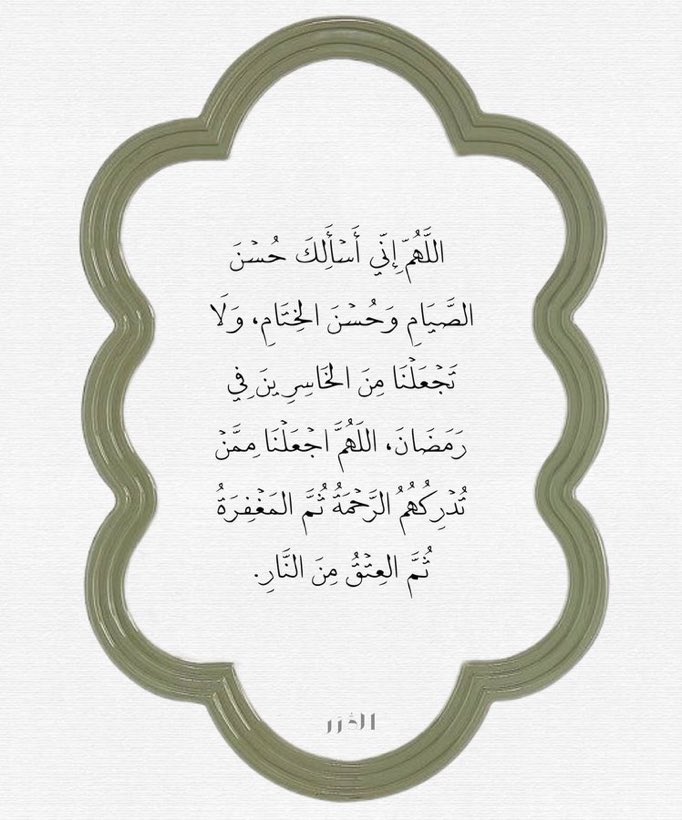 اللَّهُمَّ إِنِّي أَسْأَلُكَ حُسْنَ
الصِّيَامِ وَحُسْنَ الخِتَامِ، وَلَا
تَجْعَلْنَا مِنَ الخَاسِرِينَ فِي
رَمَضَانَ، اللَهُمَّ اجْعَلْنَا مِمَّنْ
تُدْرِكُهُمُ الرَّحْمَةُ ثُمَّ المَغْفِرَةُ
ثُمَّ العِتْقُ مِنَ النَّارِ.